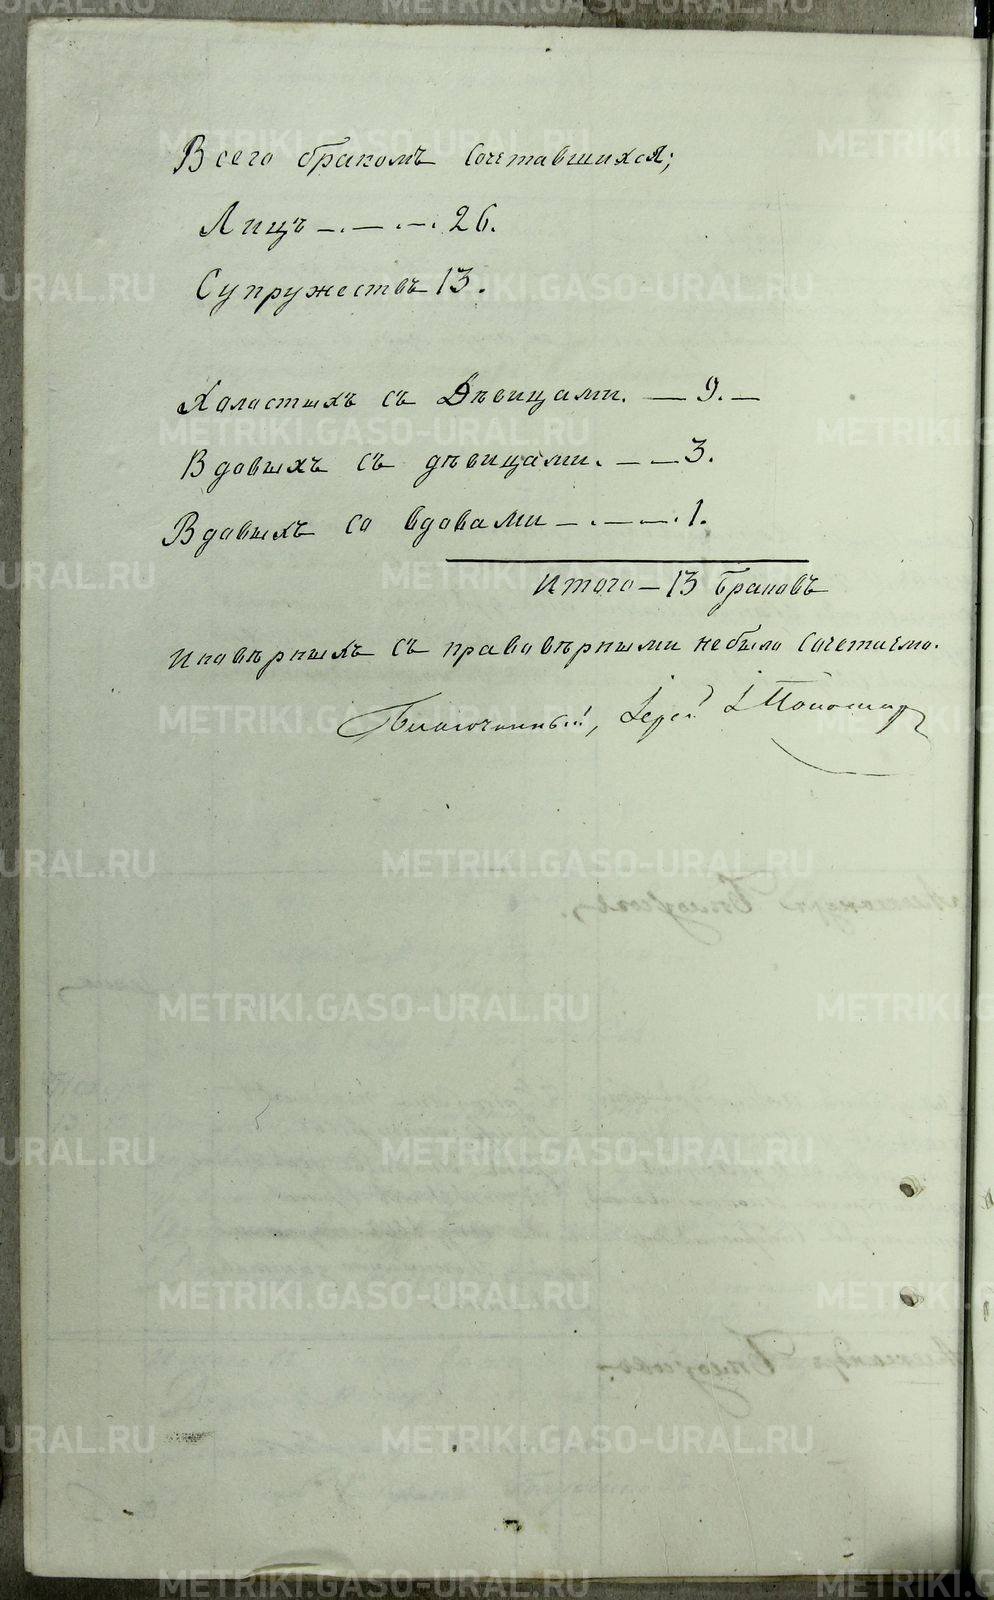 Всего бракомъ сочетавшихся;
Лицъ — . — . — . 26.
Супружествъ 13.
Халастыхъ съ Дѣвицами. — 9. —
Вдовыхъ съ дѣвицами. — — 3.
Вдавыхъ со вдовами — . — — . 1.
Итого — 13 браковъ
Иновѣрныхъ съ правовѣрными небыло сочетаемо.
Благочинный, Іерей І
METRIKI.GASO-URAL.RU